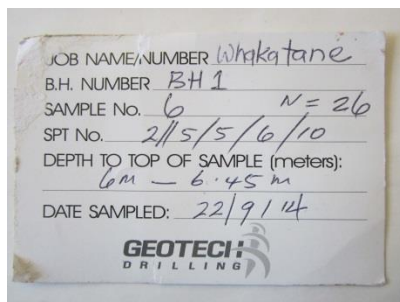 JOB NAME/NUMBER Whakatane
B.H. NUMBER BH 1
SAMPLE No. 6 N = 26
SPT No. 2//5/5/6/10
DEPTH TO TOP OF SAMPLE (meters):
6m – 6.45m
DATE SAMPLED: 22/9/14
GEOTECH
DRILLING